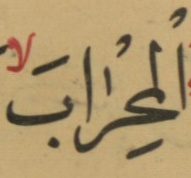 الْمِحْرَابَ ۙ